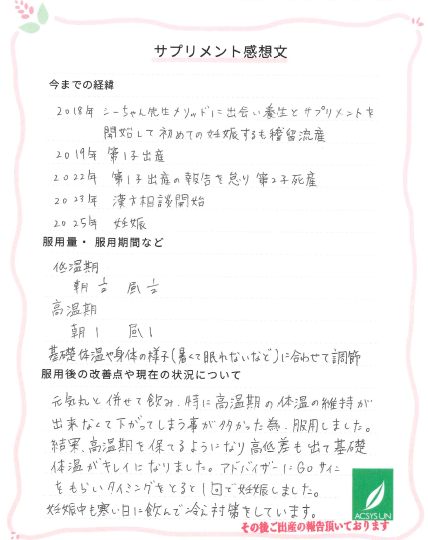 サプリメント感想文
今までの経緯
2018年 シーちゃん先生メソッドに出会い養生とサプリメントを
開始して初めての妊娠するも稽留流産
2019年 第1子出産
2022年 第1子出産の報告を怠り第2子死産
2023年 漢方相談開始
2025年 妊娠
服用量・服用期間など
低温期
朝 1/2 昼 1/2
高温期
朝 1 昼 1
基礎体温や身体の様子(暑くて眠れないなど)に合わせて調節
服用後の改善点や現在の状況について
元気丸と併せて飲み、特に高温期の体温の維持が
出来なくて下がってしまう事が多かった為、服用しました。
結果、高温期を保てるようになり高低差も出て基礎
体温がキレイになりました。アドバイザーにGOサイン
をもらいタイミングをとると1回で妊娠しました。
妊娠中も寒い日に飲んで冷え対策をしています。
ACSYS UN
その後ご出産の報告頂いております